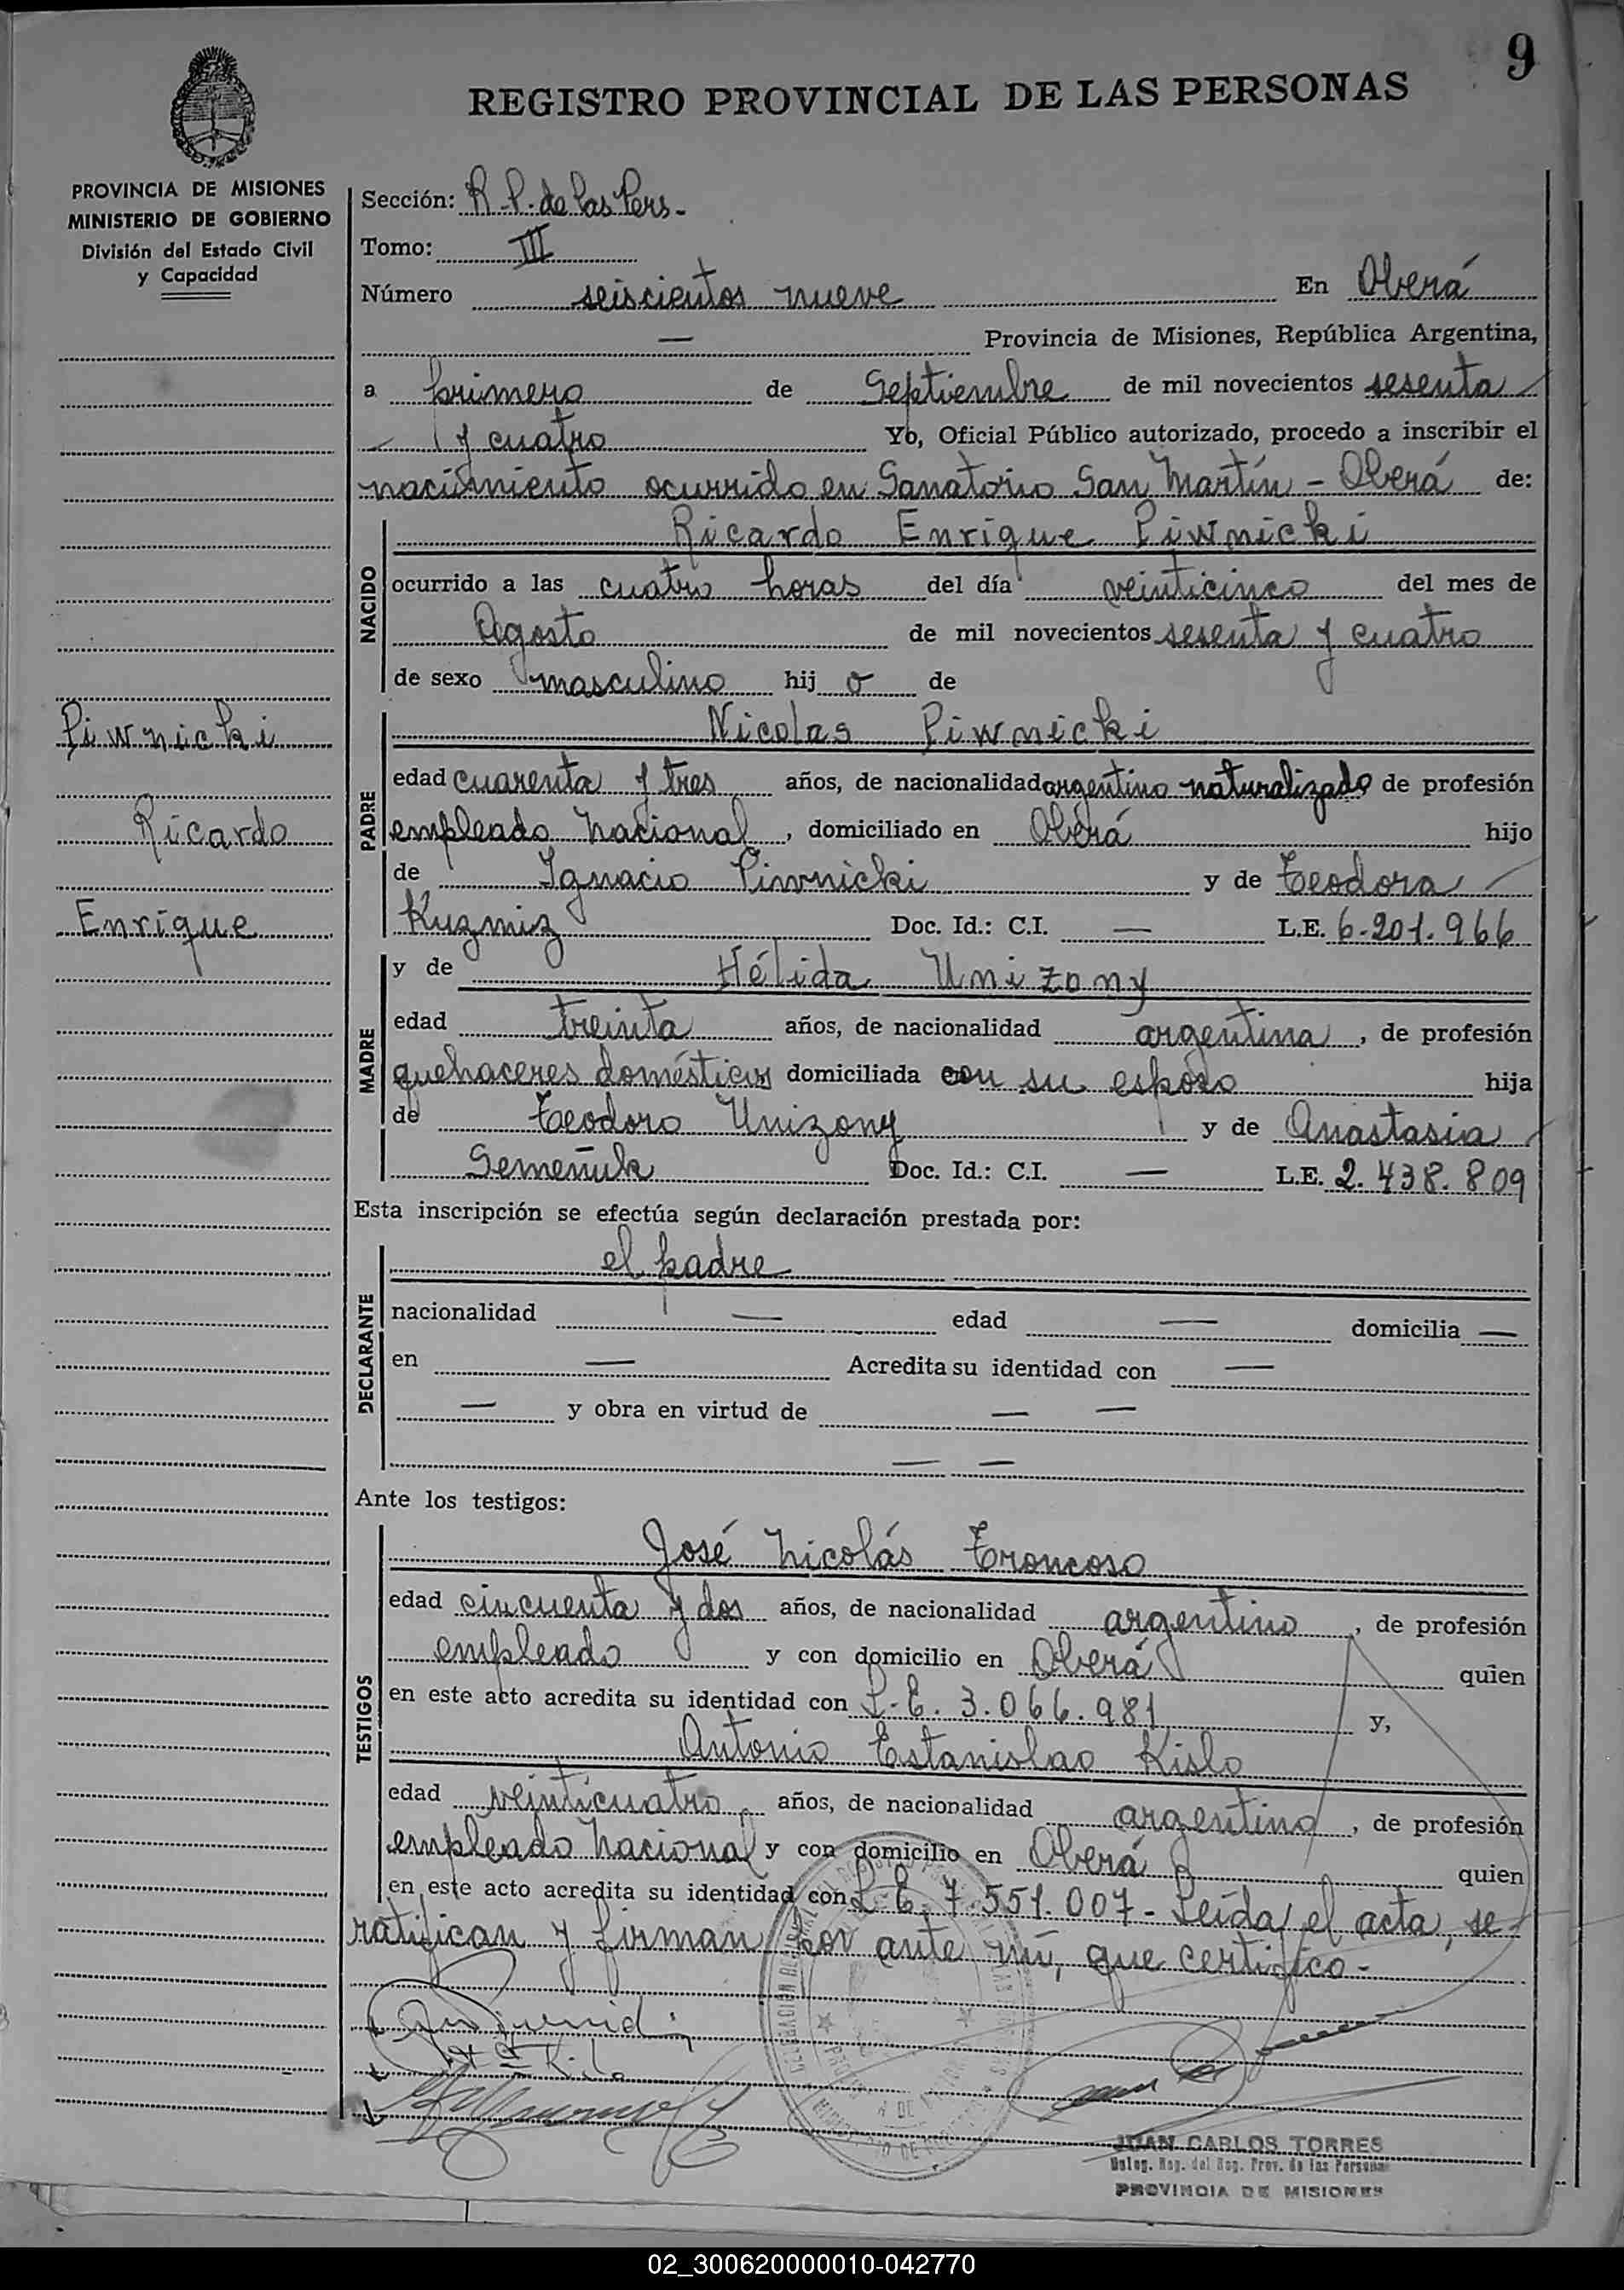 9
REGISTRO PROVINCIAL DE LAS PERSONAS
PROVINCIA DE MISIONES
MINISTERIO DE GOBIERNO
División del Estado Civil
y Capacidad
Sección: R. P. de las Pers.
Tomo: III
Número seiscientos nueve En Oberá
— Provincia de Misiones, República Argentina,
a primero de Septiembre de mil novecientos sesenta
y cuatro Yo, Oficial Público autorizado, procedo a inscribir el
nacimiento ocurrido en Sanatorio San Martín - Oberá de:
NACIDO
Ricardo Enrique Piwnicki
ocurrido a las cuatro horas del día veinticinco del mes de
Agosto de mil novecientos sesenta y cuatro
de sexo masculino hij o de
Piwnicki
Ricardo
Enrique
PADRE
Nicolas Piwnicki
edad cuarenta y tres años, de nacionalidad argentino naturalizado de profesión
empleado Nacional, domiciliado en Oberá hijo
de Ignacio Piwnicki y de Teodora
Kuzmiz Doc. Id.: C.I. — L.E. 6.201.966
MADRE
y de Hélida Unizony
edad treinta años, de nacionalidad argentina, de profesión
quehaceres domésticos domiciliada con su esposo hija
de Teodoro Unizony y de Anastasia
Semeñuk Doc. Id.: C.I. — L.E. 2.438.809
Esta inscripción se efectúa según declaración prestada por:
DECLARANTE
el padre
nacionalidad — edad — domicilia —
en — Acredita su identidad con —
— y obra en virtud de — —
— —
Ante los testigos:
TESTIGOS
José Nicolás Troncoso
edad cincuenta y dos años, de nacionalidad argentino, de profesión
empleado y con domicilio en Oberá quien
en este acto acredita su identidad con L.E. 3.066.981 y,
Antonio Estanislao Kislo
edad veinticuatro años, de nacionalidad argentino, de profesión
empleado Nacional y con domicilio en Oberá quien
en este acto acredita su identidad con L.E. 7.551.007 - Leída el acta, se
ratifican y firman por ante mí, que certifico -
JUAN CARLOS TORRES
Deleg. Reg. del Reg. Prov. de las Personas
PROVINCIA DE MISIONES
02_300620000010-042770